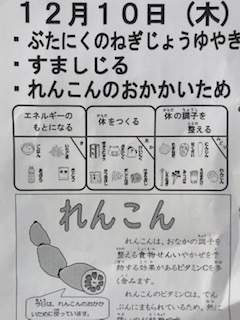 12月10日（木）
・ぶたにくのねぎじょうゆやき
・すましじる
・れんこんのおかかいため
エネルギーの
もとになる
体をつくる
体の調子を
整える
れんこん
れんこんは、おなかの調子を
整える食物せんいやかぜを予
防する効果があるビタミンCを多
く含みます。
れんこんのビタミンCは、でん
ぷんにまもられているため、熱に
は、れんこんのおかか
いために使っています。